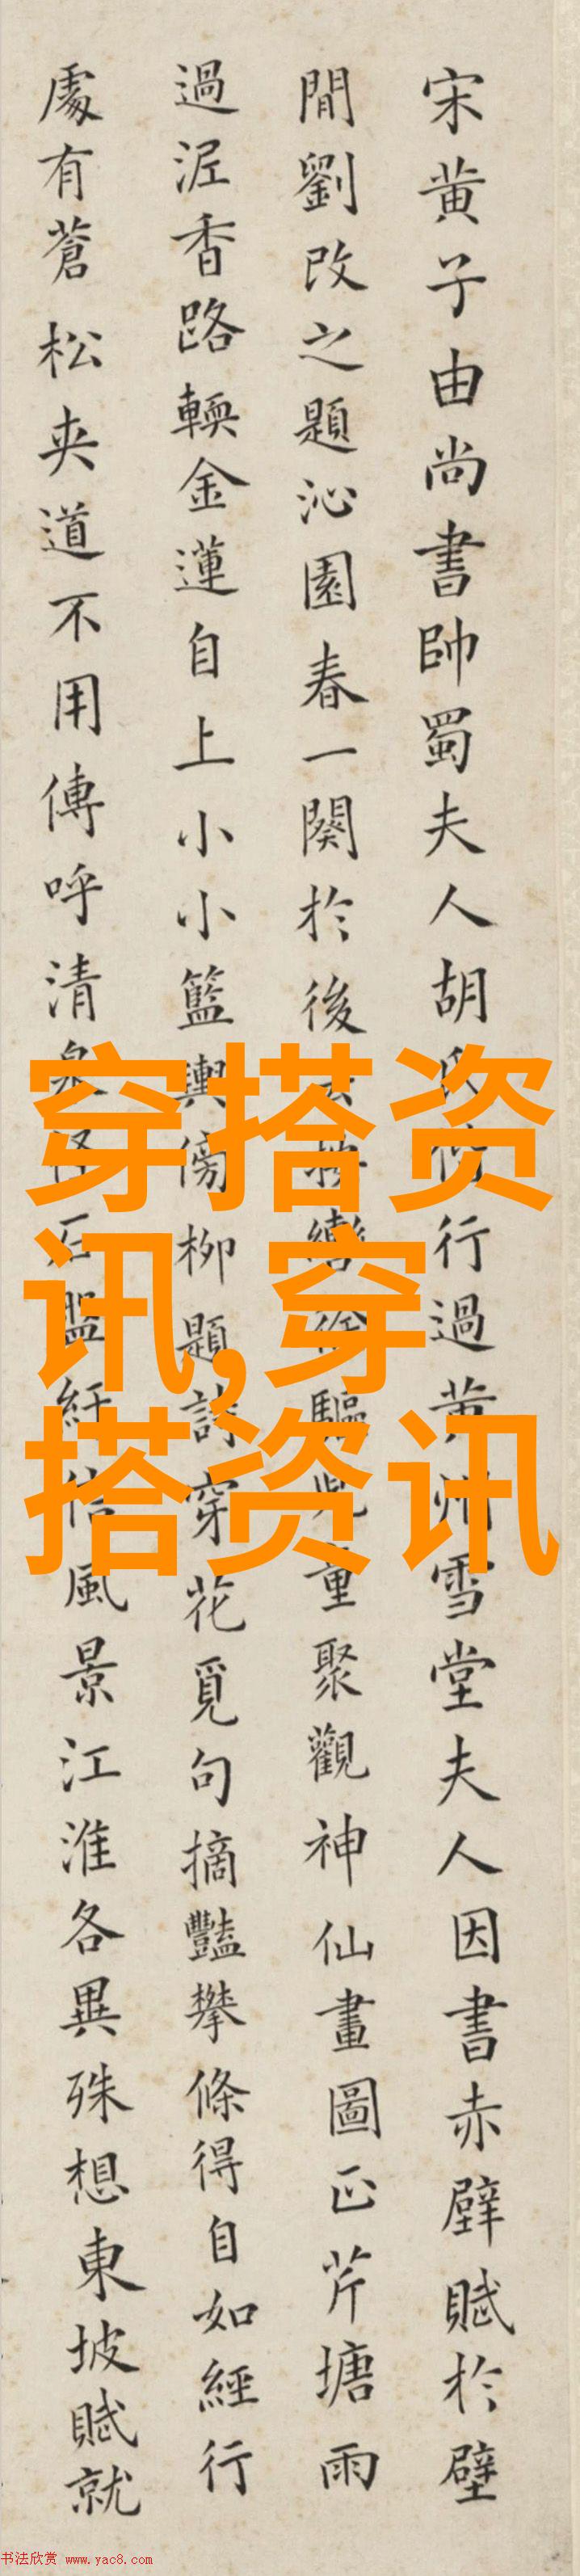 宋黄子由尚書帥蜀夫人胡行過黄州雪堂夫人因書赤壁賦於壁
間劉改之題沁園春一闋於後驅兒童聚觀神仙畫圖正芹塘雨
過泥香路輭金蓮自上小小籃輿傍柳題詩穿花覓句摘豔攀條得自如經行
處有蒼松夾道不用傳呼清泉石盤紆信風景江淮各異殊想東坡賦就
穿搭资
讯,穿
搭资讯
书法欣赏 www.yac8.com